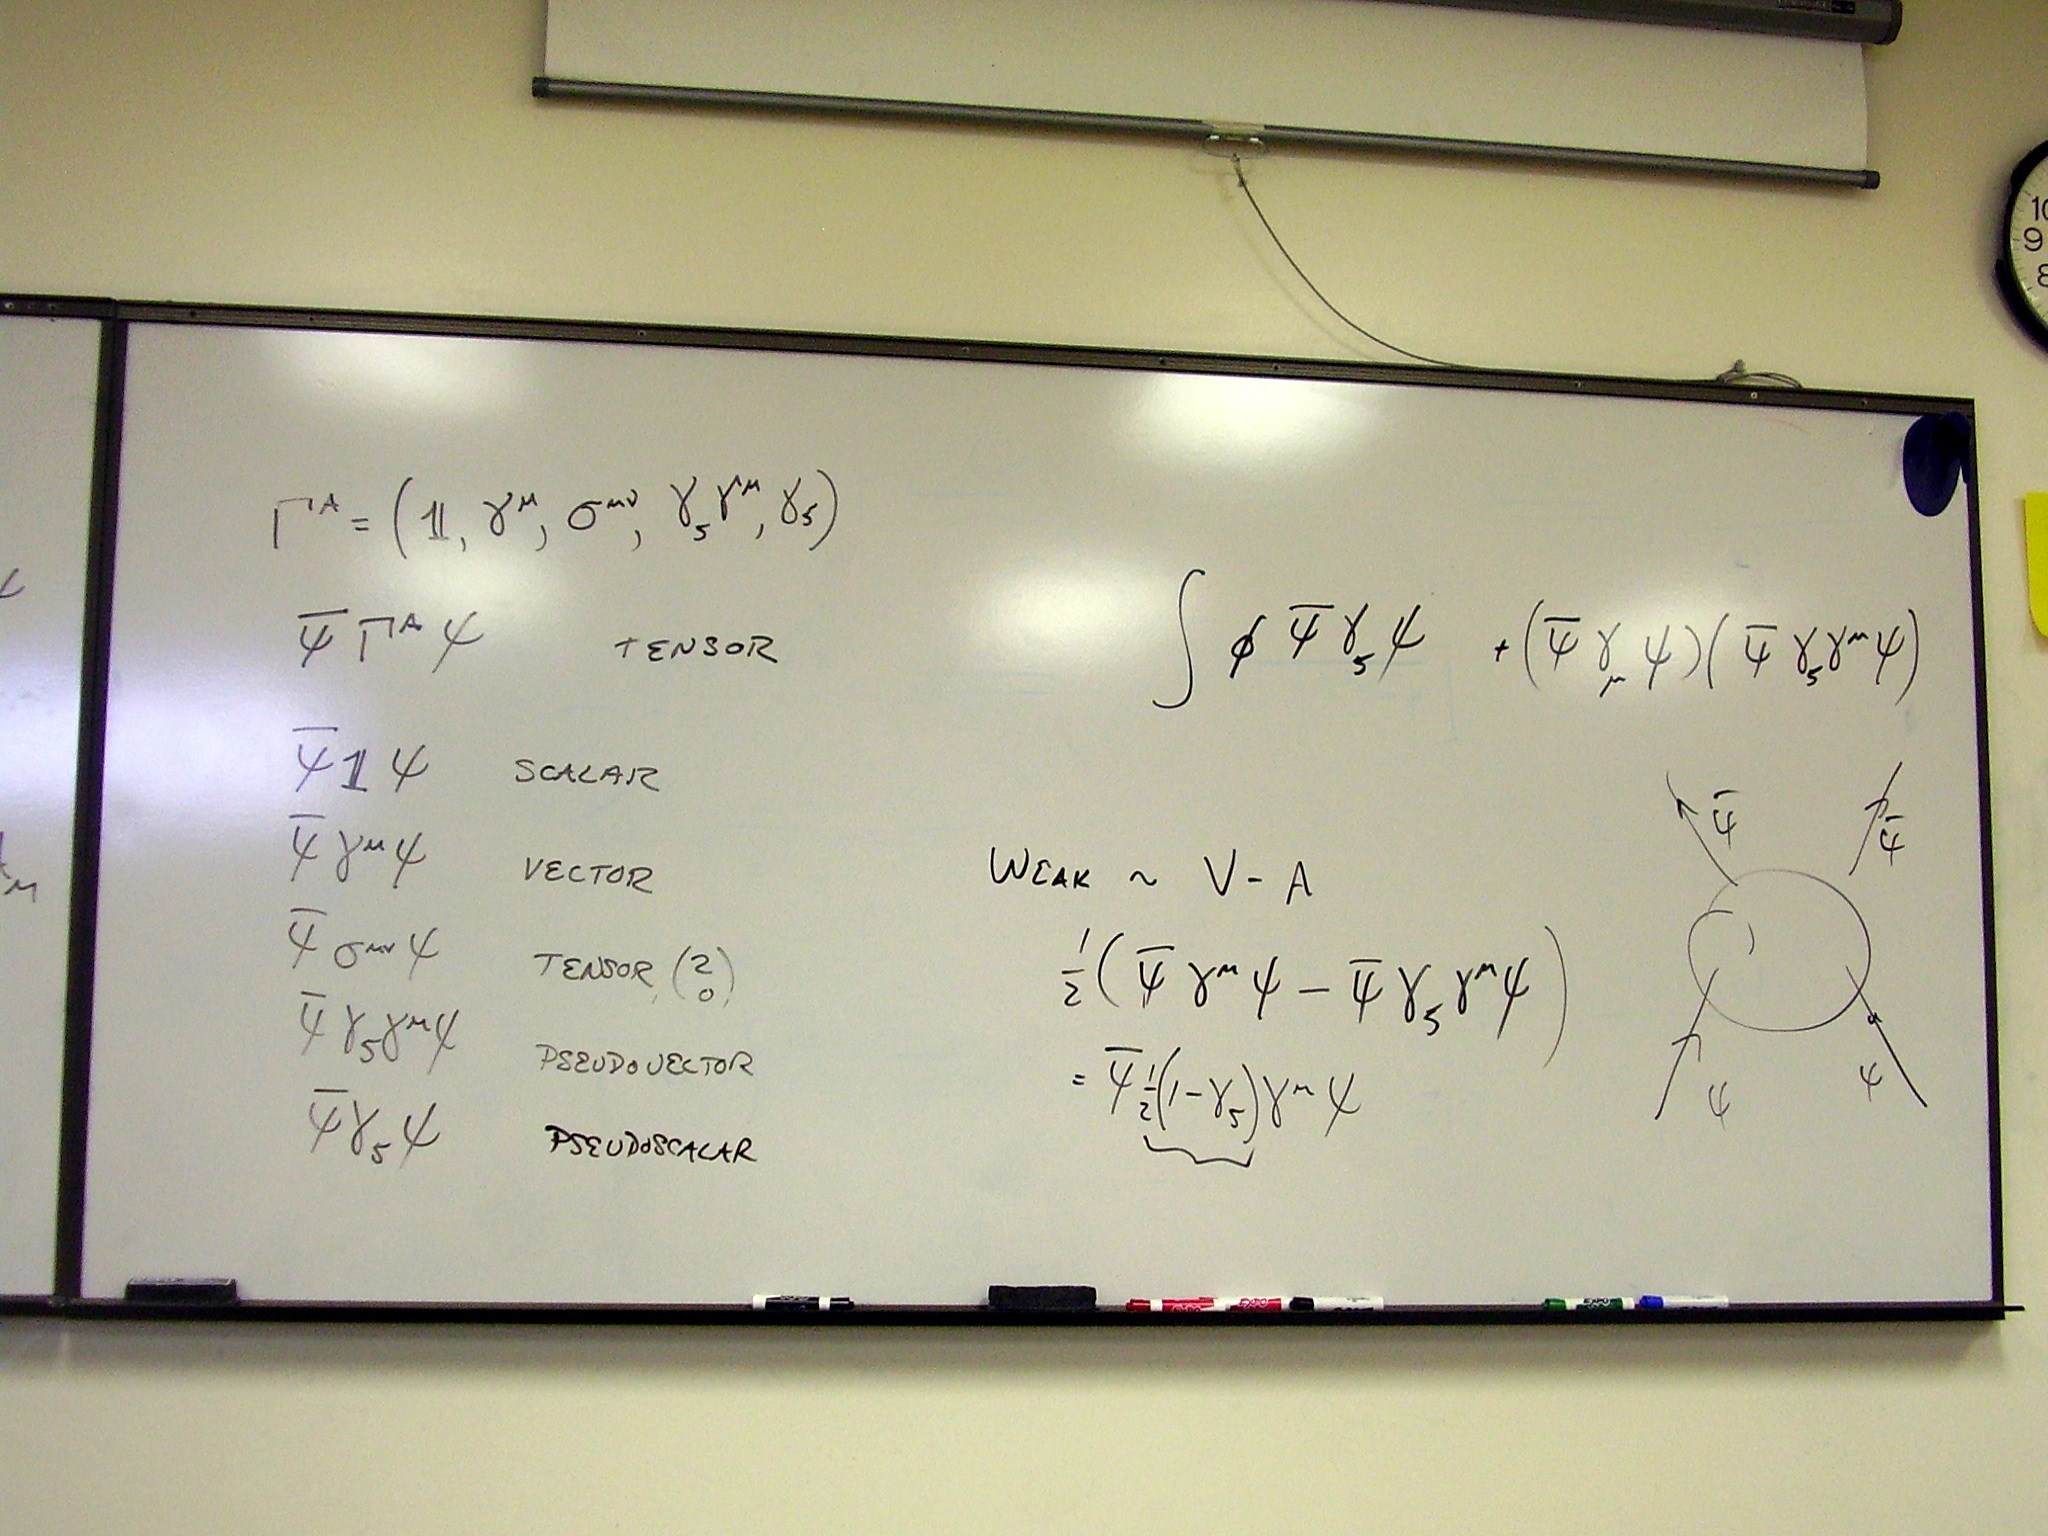 Γᴬ = (𝟙, γ^μ, σ^μν, γ₅γ^μ, γ₅)
ψ̄ Γᴬ ψ TENSOR
ψ̄ 𝟙 ψ SCALAR
ψ̄ γ^μ ψ VECTOR
ψ̄ σ^μν ψ TENSOR (2 0)
ψ̄ γ₅γ^μ ψ PSEUDOVECTOR
ψ̄ γ₅ ψ PSEUDOSCALAR
∫ ϕ ψ̄ γ₅ ψ + (ψ̄ γ_μ ψ)(ψ̄ γ₅γ^μ ψ)
WEAK ~ V - A
½(ψ̄ γ^μ ψ − ψ̄ γ₅γ^μ ψ)
= ψ̄ ½(1-γ₅)γ^μ ψ
ψ̄ ψ̄
ψ ψ
10
9
8
EXPO
EXPO
EXPO